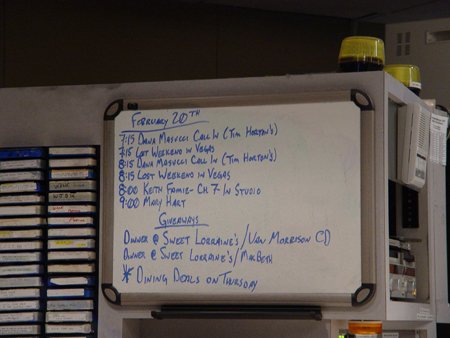 February 20th
7:15 Dana Masucci Call In (Tim Horton's)
7:15 Lost Weekend in Vegas
8:15 Dana Masucci Call In (Tim Horton's)
8:15 Lost Weekend in Vegas
8:00 Keith Famie - Ch 7 - In Studio
9:00 Mary Hart
Giveaways
Dinner @ Sweet Lorraine's / Van Morrison CD
Dinner @ Sweet Lorraine's / MacBeth
* Dining Deals on Thursday